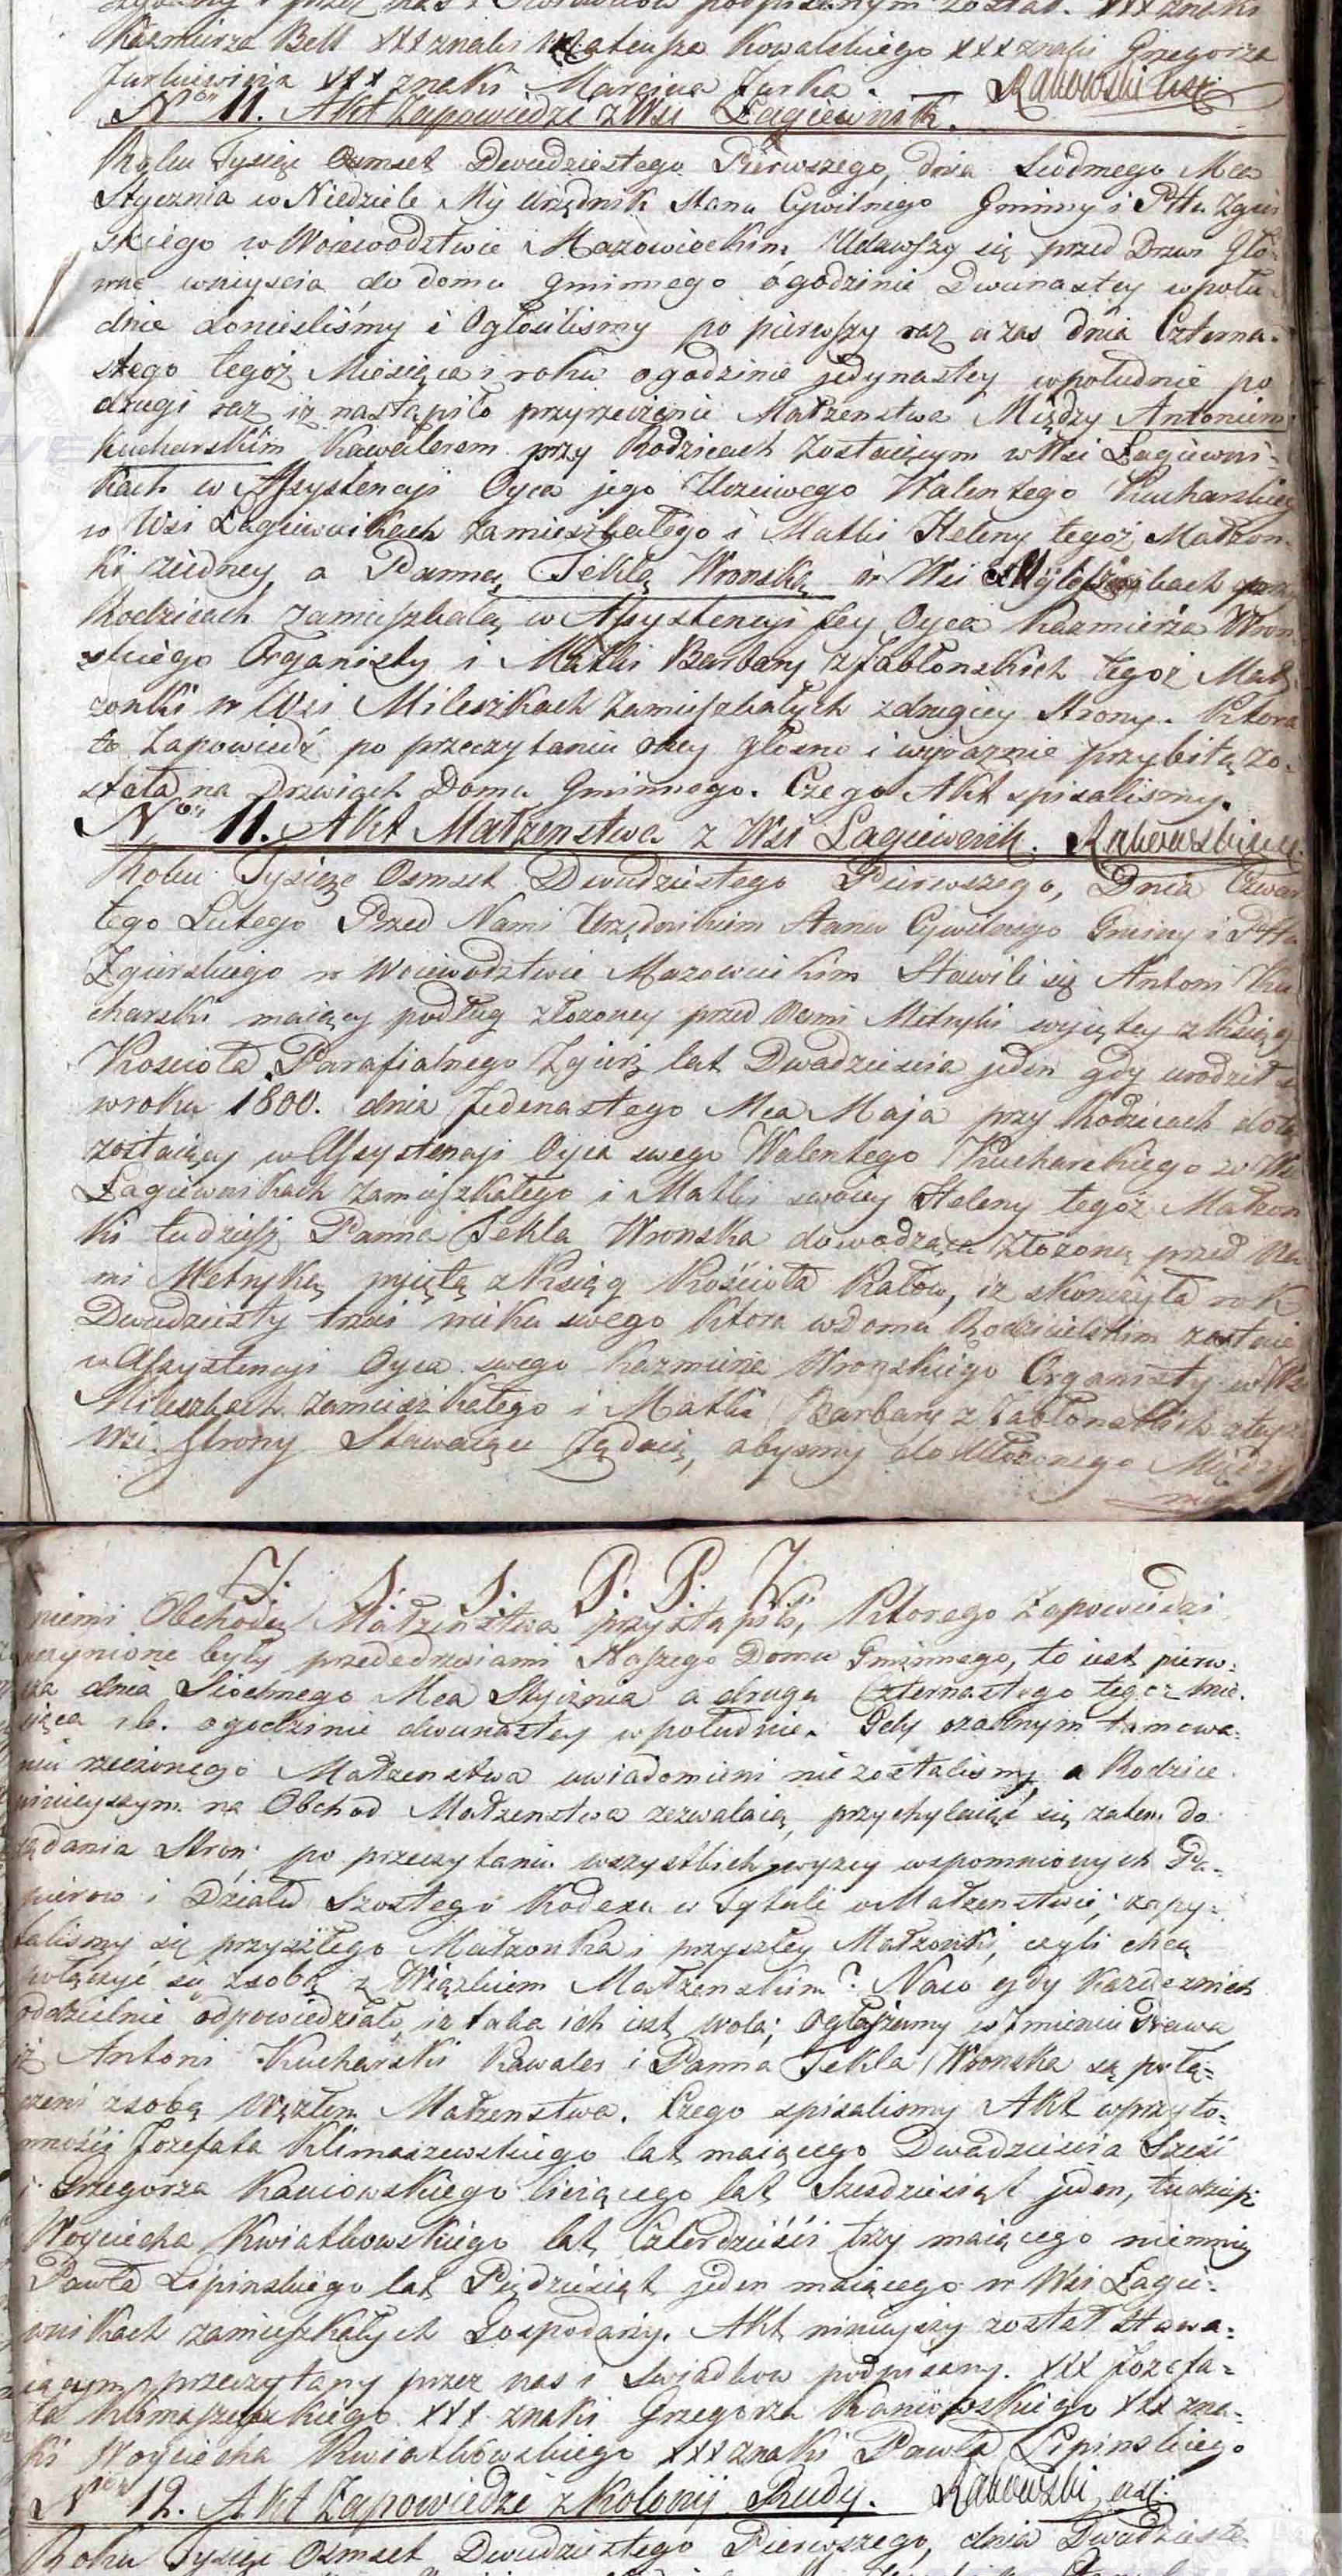 Kazmierza Bell XXX znaki Mateusza Kowalskiego XXX znaki Grzegorza
Jurkiewicza XXX znaki Marcina Jurka. Rakowski
Nro 11. Akt Zapowiedzi z Wsi Łagiewnik.
Roku Tysiąc Osmset Dwudziestego Pierwszego, dnia Siodmego Mca
Stycznia w Niedziele My Urzędnik Stanu Cywilnego Gminny i Pttu Zgier
skiego w Woiewodztwie Mazowieckim Udawszy się przed Drzwi Gło-
wne wniyscia do domu gminnego ogodzinie Dwunastey wpołu-
dnie doniesliśmy i Ogłosilismy po pierwszy raz a zas dnia Czterna-
stego tegoż Miesiąca i roku ogodzinie jedynastey wpołudnie po
drugi raz iz nastąpiło przyrzeczenie Małzenstwa Między Antonim
Kucharskim Kawalerem przy Rodzicach zostaiącym w Wsi Łagiewni-
kach w Assystencyi Oyca jego Uczciwego Walentego Kucharskiego
w Wsi Łagiewnikach zamieszkałego i Matki Heleny tegoż Małzon-
ki a Panną Teklą Wronską w Wsi przy
Rodzicach zamieszkałą w Assystencyi Jey Oyca Kazmierza Wron
skiego Organisty i Matki Barbary z Jabłonskich tegoż Mał-
zonki w Wsi Mileszkach zamieszkałych zdrugiey Strony. Ktora
to Zapowiedź po przeczytaniu oney głosno i wyraznie przybitą zo-
stała na Drzwiach Domu Gminnego. Czego Akt spisalismy.
Nro 11. Akt Małzenstwa z Wsi Łagiewnik. Rakowski
Roku Tysiąc Osmset Dwudziestego Pierwszego, Dnia Czwar
tego Lutego Przed Nami Urzędnikiem Stanu Cywilnego Gminy i Pttu
Zgierskiego w Woiewodztwie Mazowieckim Stawili się Antoni Ku
charski maiący podług złozoney przed Nami Metryki wyiętey z Ksiąg
Koscioła Parafialnego Zgierz lat Dwadziescia jeden gdy urodził się
wroku 1800. dnia Jedenastego Mca Maja przy Rodzicach dotąd
zostaiący w Assystencyi Oyca swego Walentego Kucharskiego w Wsi
Łagiewnikach zamieszkałego i Matki swoiey Heleny tegoż Małzon
ki tudziesz Panna Tekla Wronska dowodząca złozoną przed Na
mi Metryką wyiętą z Ksiąg Kościoła Rałow, iz skonczyła rok
Dwudziesty trzeci wieku swego Ktora wdomu Rodzicielskim zostaie
w Assystencyi Oyca swego Kazmierza Wronskiego Organisty w Wsi
Mileszkach zamieszkałego i Matki Barbary z Jabłonskich
Strony Stawaiące Ządaią, abysmy do ułozonego Między
Z. S. S. P. P. Z.
niemi Obchodu Małzenstwa przystąpili, Ktorego Zapowiedzi
uczynione były przededrzwiami Naszego Domu Gminnego, to iest pierw-
sza dnia Siodmego Mca Stycznia a druga Czternastego tegoz mie-
siąca r.b. ogodzinie dwunastey wpołudnie. Gdy ozadnym tamowa-
niu rzeczonego Małzenstwa uwiadomieni niezostalismy, a Rodzice
ninieyszym na Obchod Małzenstwa zezwalaią, przychylaiąc się zatem do
ządania Stron; po przeczytaniu wszystkich wyzey wspomnionych Pa-
pierow i Działu Szostego Kodexu w Tytuli o Małzenstwie; zapy-
talismy się przyszłego Małzonka i przyszłey Małzonki, czyli chcą
połączyć się zsobą z Wiązkiem Małzenskim? Naco gdy Kazde znich
oddzielnie odpowiedziało, iz taka ich iest wola; Ogłaszamy w Imieniu Prawa
iż Antoni Kucharski Kawaler i Panna Tekla Wronska są połą-
czeni zsobą Węzłem Małzenstwa. Czego spisalismy Akt wprzyto-
mności Jozefata Klimaszewskiego lat maiącego Dwadziescia Szesc
i Grzegorza Kaniowskiego liczącego lat Szesdziesiąt jeden, tudziesz
Woyciecha Kwiatkowskiego lat Czterdzieści trzy maiącego niemniey
Pawła Lipinskiego lat Pięдziesiąt jeden maiącego w Wsi Łagie-
wnikach zamieszkałych Gospodarzy. Akt ninieyszy został stawa-
iącym przeczytany przez nas i Swiadkow podpisany. XXX Jozefa-
ta Klimaszewskiego XXX znaki Grzegorza Kaniowskiego XXX zna-
ki Woyciecha Kwiatkowskiego XXX znaki Pawła Lipinskiego
Nro 12. Akt Zapowiedzi z Kolonij Rudy. Rakowski
Roku Tysiąc Osmset Dwudziestego Pierwszego, dnia Dwudzieste-